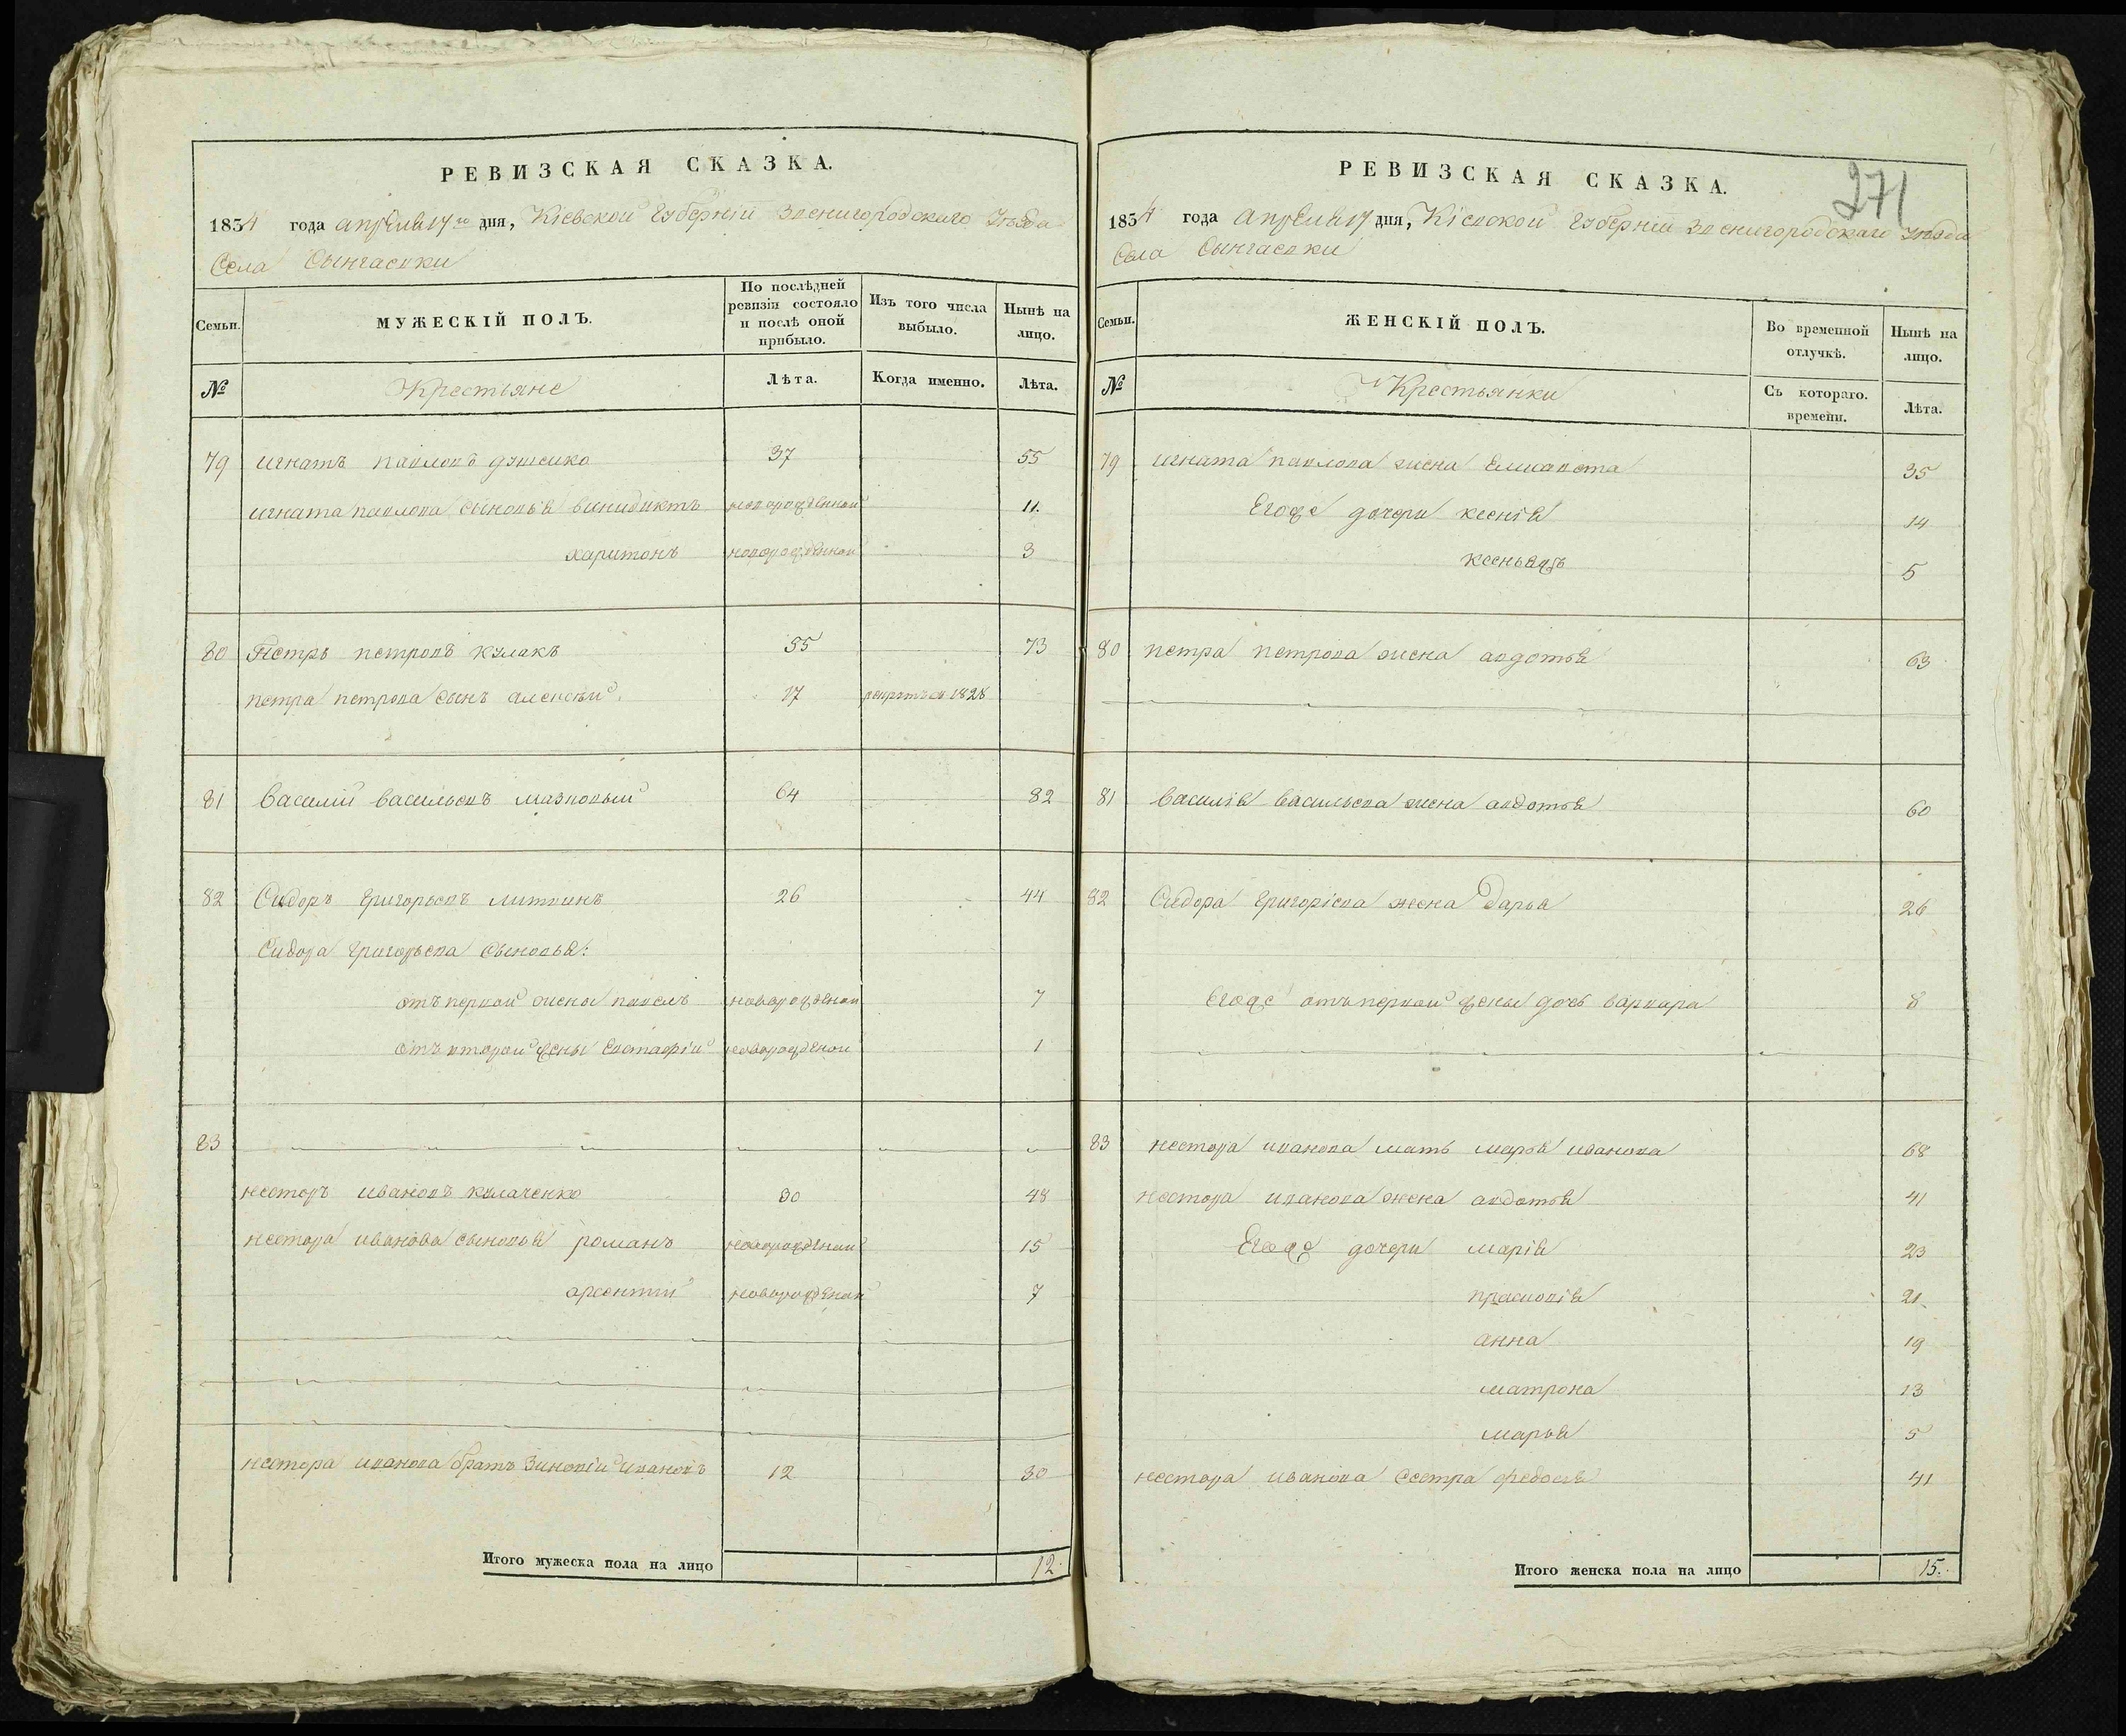 РЕВИЗСКАЯ СКАЗКА.
1834 года апреля 17го дня, Кіевской Губерніи Звенигородскаго Уѣзда
Села
Семьи.
МУЖЕСКІЙ ПОЛЪ.
По послѣдней ревизіи состояло и послѣ оной прибыло.
Изъ того числа выбыло.
Нынѣ на лицо.
№ Крестьяне Лѣта. Когда именно. Лѣта.
79 игнатъ павловъ 37 55
игната павлова сыновья винидиктъ новорожденной 11.
харитонъ новорожденной 3
80 Петръ петровъ кулакъ 55 73
петра петрова сынъ алексѣй 17 1828
81 Василій васильевъ мазновый 64 82
82 Сидоръ григорьевъ литвинъ 26 44
Сидора григорьева сыновья:
отъ первой жены павелъ новорожденой 7
отъ второй жены Евстафій новорожденой 1
83
несторъ ивановъ кулаченко 30 48
нестора иванова сыновья романъ новорожденой 15
арсентий новорожденой 7
нестора иванова братъ Зиновій ивановъ 12 30
Итого мужеска пола на лицо 12.
РЕВИЗСКАЯ СКАЗКА.
271
1834 года апреля 17 дня, Кіевской Губерніи Звенигородскаго Уѣзда
Села
Семьи.
ЖЕНСКІЙ ПОЛЪ.
Во временной отлучкѣ.
Нынѣ на лицо.
№ Крестьянки Съ котораго. времени. Лѣта.
79 игната павлова жена Елисавета 35
Егоже дочери ксенія 14
5
80 петра петрова жена авдотья 63
81 Василія васильева жена авдотья 60
82 Сидора григоріева жена Дарья 26
Егоже отъ первой жены дочь варвара 8
83 нестора иванова мать марья иванова 68
нестора иванова жена авдотья 41
Егоже дочери марія 23
прасковія 21
анна 19
матрона 13
марья 5
нестора иванова сестра федосія 41
Итого женска пола на лицо 15.